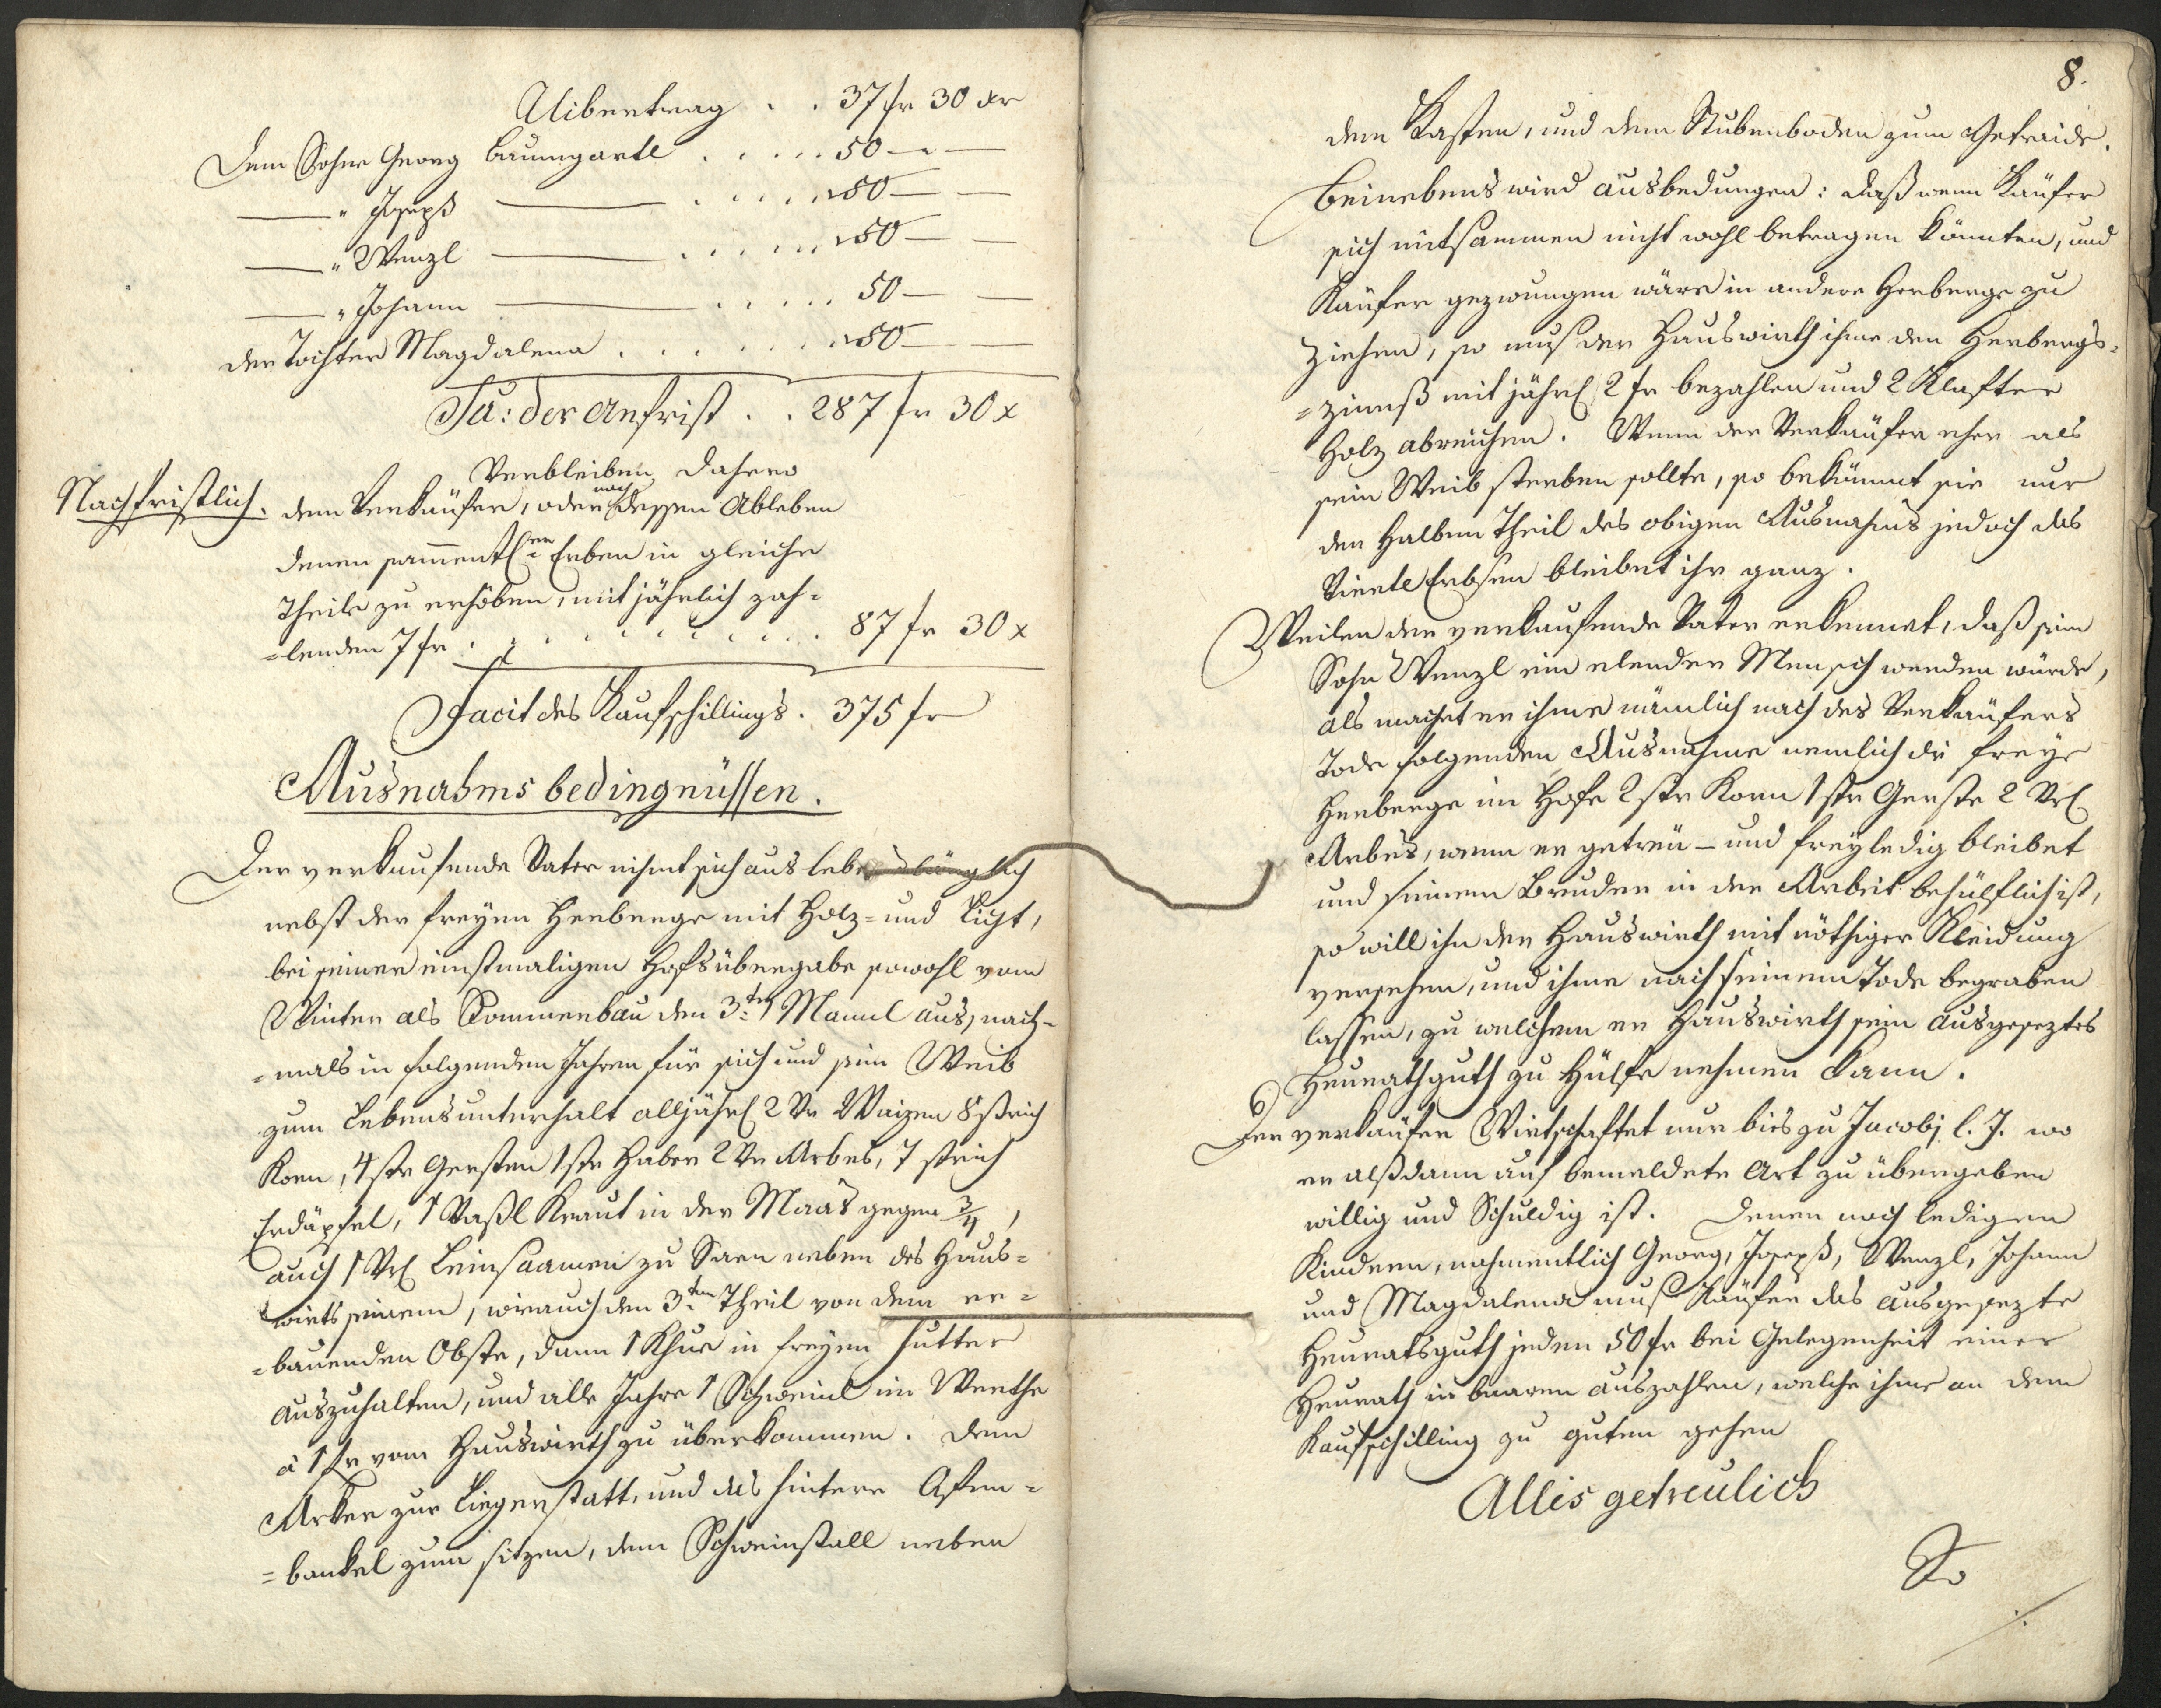 Uibertrag . . 37 fr 30 xr
Dem Sohne Georg Baumgartl . . . . . 50 — —
— " Joseph — . . . . . 50 — —
— " Wenzl — . . . . . 50 — —
— " Johann — . . . . . 50 — —
der Tochter Magdalena . . . . . . 50 — —
Sa: der Anfrist . . 287 fr 30 x
Verbleiben dahero
Nachfristlich. dem Verkäufer, oder nach dessen Ableben
denen sammentl:en Erben in gleiche
Theile zu erhöben, mit jährlich zah=
=lenden 7 fr . . . . . . . . . . . 87 fr 30 x
Facit des Kaufschillings . 375 fr
Ausnahmsbedingnüssen.
Der verkaufende Vater nihmt sich aus lebenslänglich
nebst der freyen Herberge mit Holz= und Licht,
bei seiner einstmaligen Hofsübergabe sowohl vom
Winter als Sommerbau den 3:ten Mannl aus, nach=
=mals in folgenden Jahren für sich und sein Weib
zum Lebensunterhalt alljährl 2 Vr Waizen 8 strich
Korn, 4 str Gersten 1 str Haber 2 Vr Arbes, 7 strich
Erdäpfel, 1 Vaßl Kraut in der Maas gegen 3/4,
auch 1 Vrl Leinsaamen zu Säen neben des Haus=
wirts seinem, wie auch den 3:ten Theil von dem er=
=bauenden Obste, dann 1 Khue in freyen Futter
auszuhalten, und alle Jahre 1 Schweinl im Werthe
à 1 fr vom Hauswirth zu überkommen. Den
Arker zur Liegerstatt, und das hintere Ofen=
=bankel zum sitzen, dem Schweinstall neben
8.
dem Kasten, und dem Stubenboden zum Getraide.
Beinebens wird ausbedungen: daß wenn Käufer
sich mitsammen nicht wohl betragen könnten, und
Käufer gezwungen wäre in andere Herberge zu
ziehen, so muß der Hauswirth ihme den Herbergs=
=zinnß mit jährl 2 fr bezahlen und 2 Klafter
Holz abreichen. Wenn der Verkäufer eher als
sein Weib sterben sollte, so bekümmt sie nur
den halben Theil des obigen Ausnahms jedoch das
Viertl Erbsen bleibet ihr ganz.
Weilen der verkaufende Vater erkennet, daß sein
Sohn Wenzl ein elender Mensch werden würde,
als machet er ihme nämlich nach des Verkäufers
Tode folgenden Ausnahme nemlich die freye
Herberge im Hofe 2 str Korn 1 str Gerste 2 Vrl
Arbes, wenn er getreu – und freyledig bleibet
und seinem Bruder in der Arbeit behülflich ist,
so will ihn der Hauswirth mit nöthiger Kleidung
versehen, und ihme nach seinem Tode begraben
lassen, zu welchem er Hauswirth sein ausgeseztes
Heurathguth zu Hülfe nehmen kann.
Der verkäufer Wirtschaftet nur bies zu Jacobj l. J. wo
er alßdann auf bemeldete Art zu übergeben
willig und Schuldig ist. Denen noch ledigen
Kindern, nahmentlich Georg, Joseph, Wenzl, Johann
und Magdalena muß Käufer das ausgesezte
Heuratsguth jeden 50 fr bei Gelegenheit einer
Heurath in baaren auszahlen, welche ihme an dem
Kaufschilling zu guten gehen
Alles getreulich